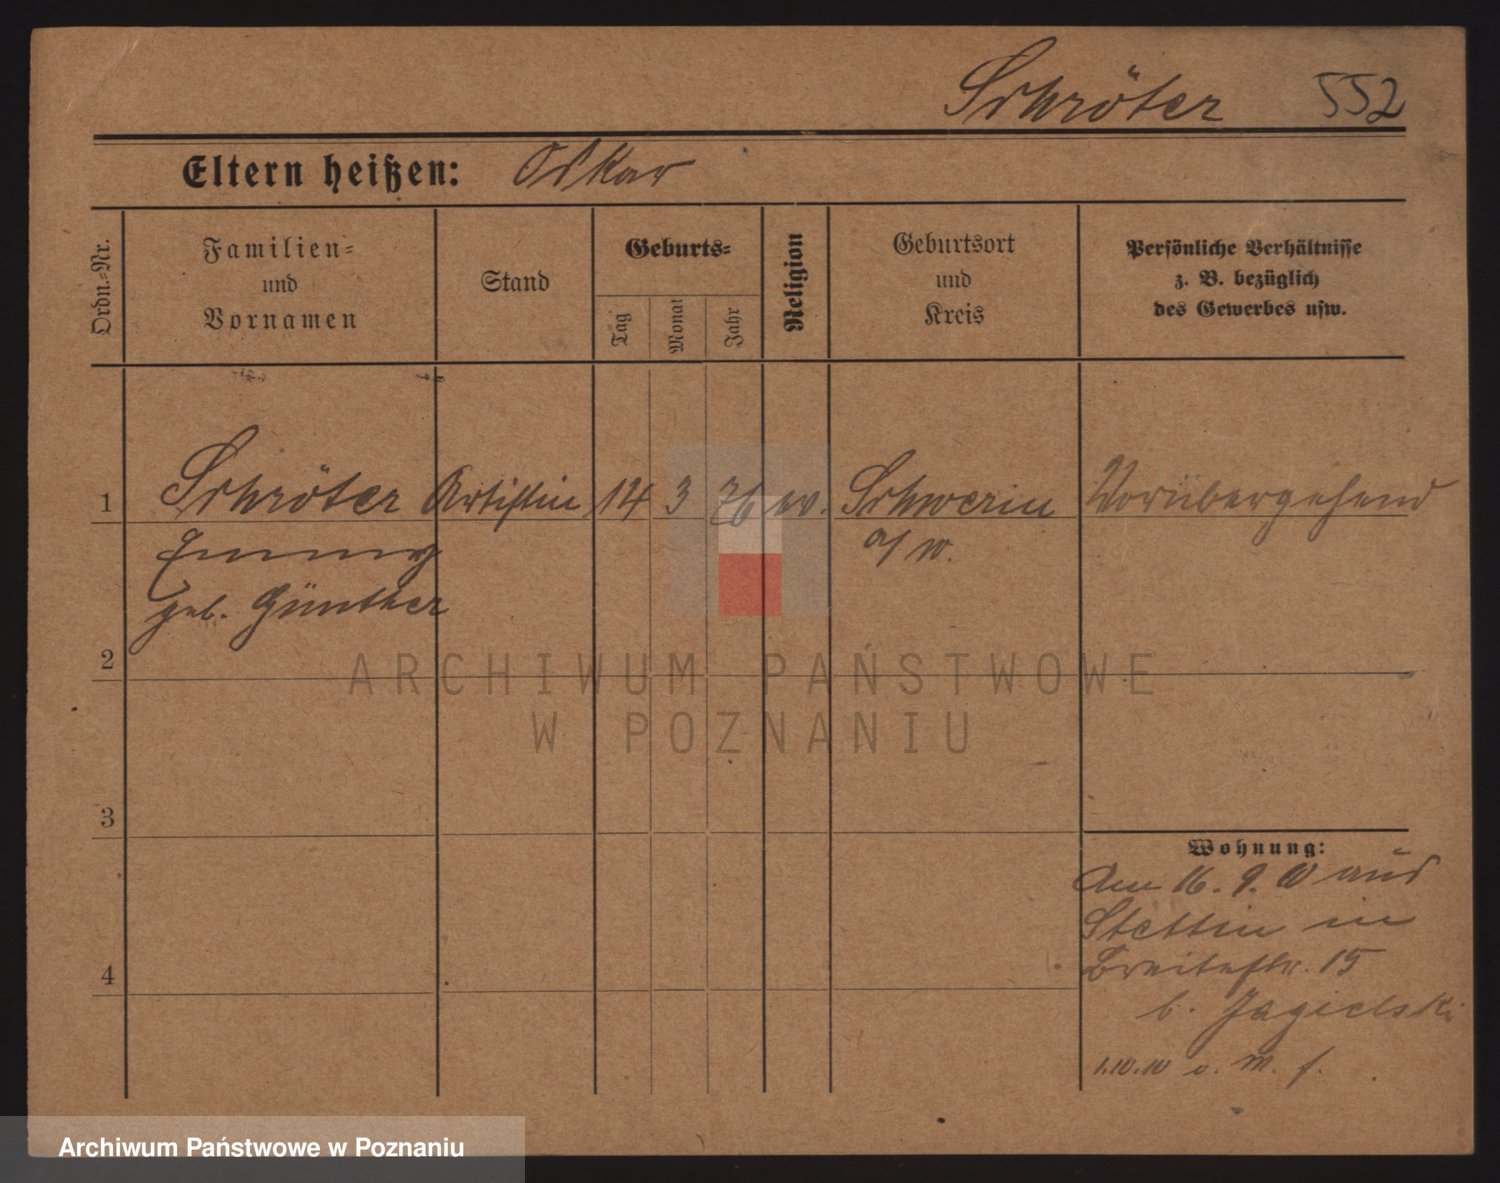 Schröter 552
Eltern heißen: Oskar
Ordn.-Nr.
Familien-
und
Vornamen
Stand
Geburts-
Tag
Monat
Jahr
Religion
Geburtsort
und
Kreis
Persönliche Verhältnisse
z. B. bezüglich
des Gewerbes usw.
1 Schröter Artistin 14 3 76 ev. Schwerin Vorübergehend
Emmy a/W.
geb. Günther
2
ARCHIWUM PAŃSTWOWE
W POZNANIU
3
Wohnung:
Am 16. 9. 10 aus
Stettin in
Breitestr. 15
b. Jagielski
4
1.10.10 o. M. f.
Archiwum Państwowe w Poznaniu